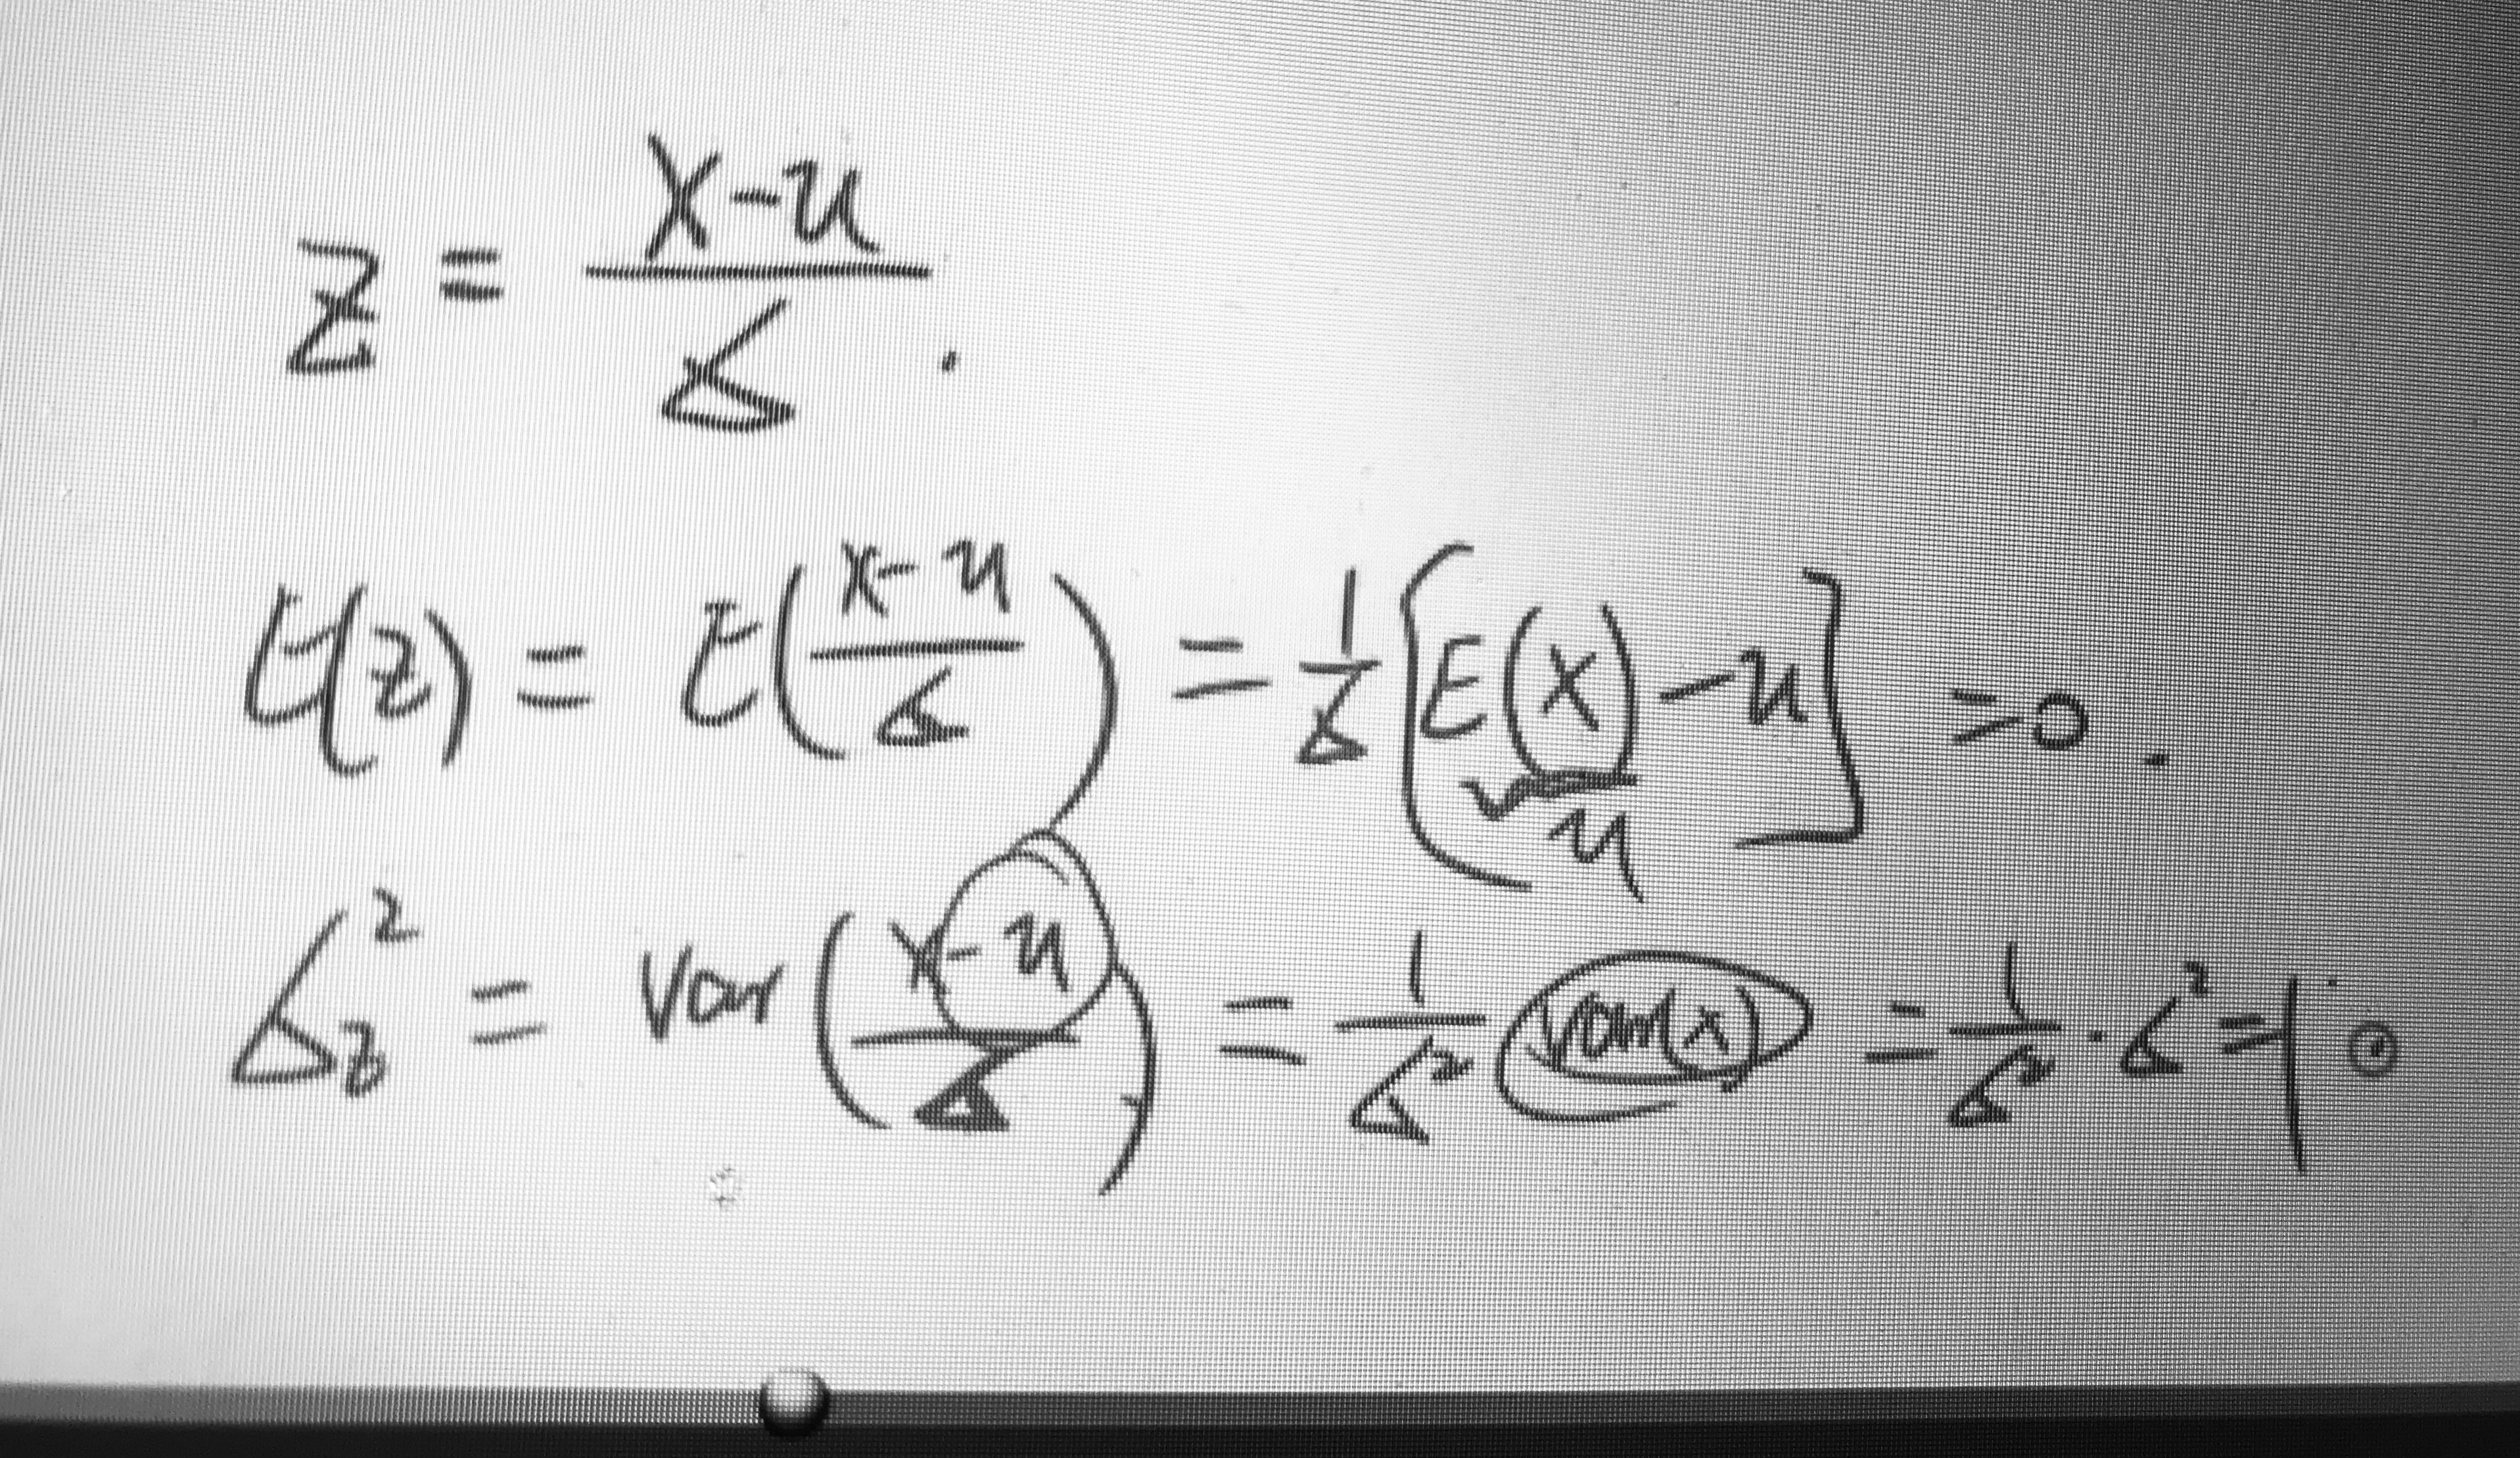 Z = (X-μ)/σ.
E(Z) = E((X-μ)/σ) = 1/σ [E(X) - μ] = 0.
μ
σ_Z² = Var((X-μ)/σ) = 1/σ² Var(X) = 1/σ² · σ² = 1